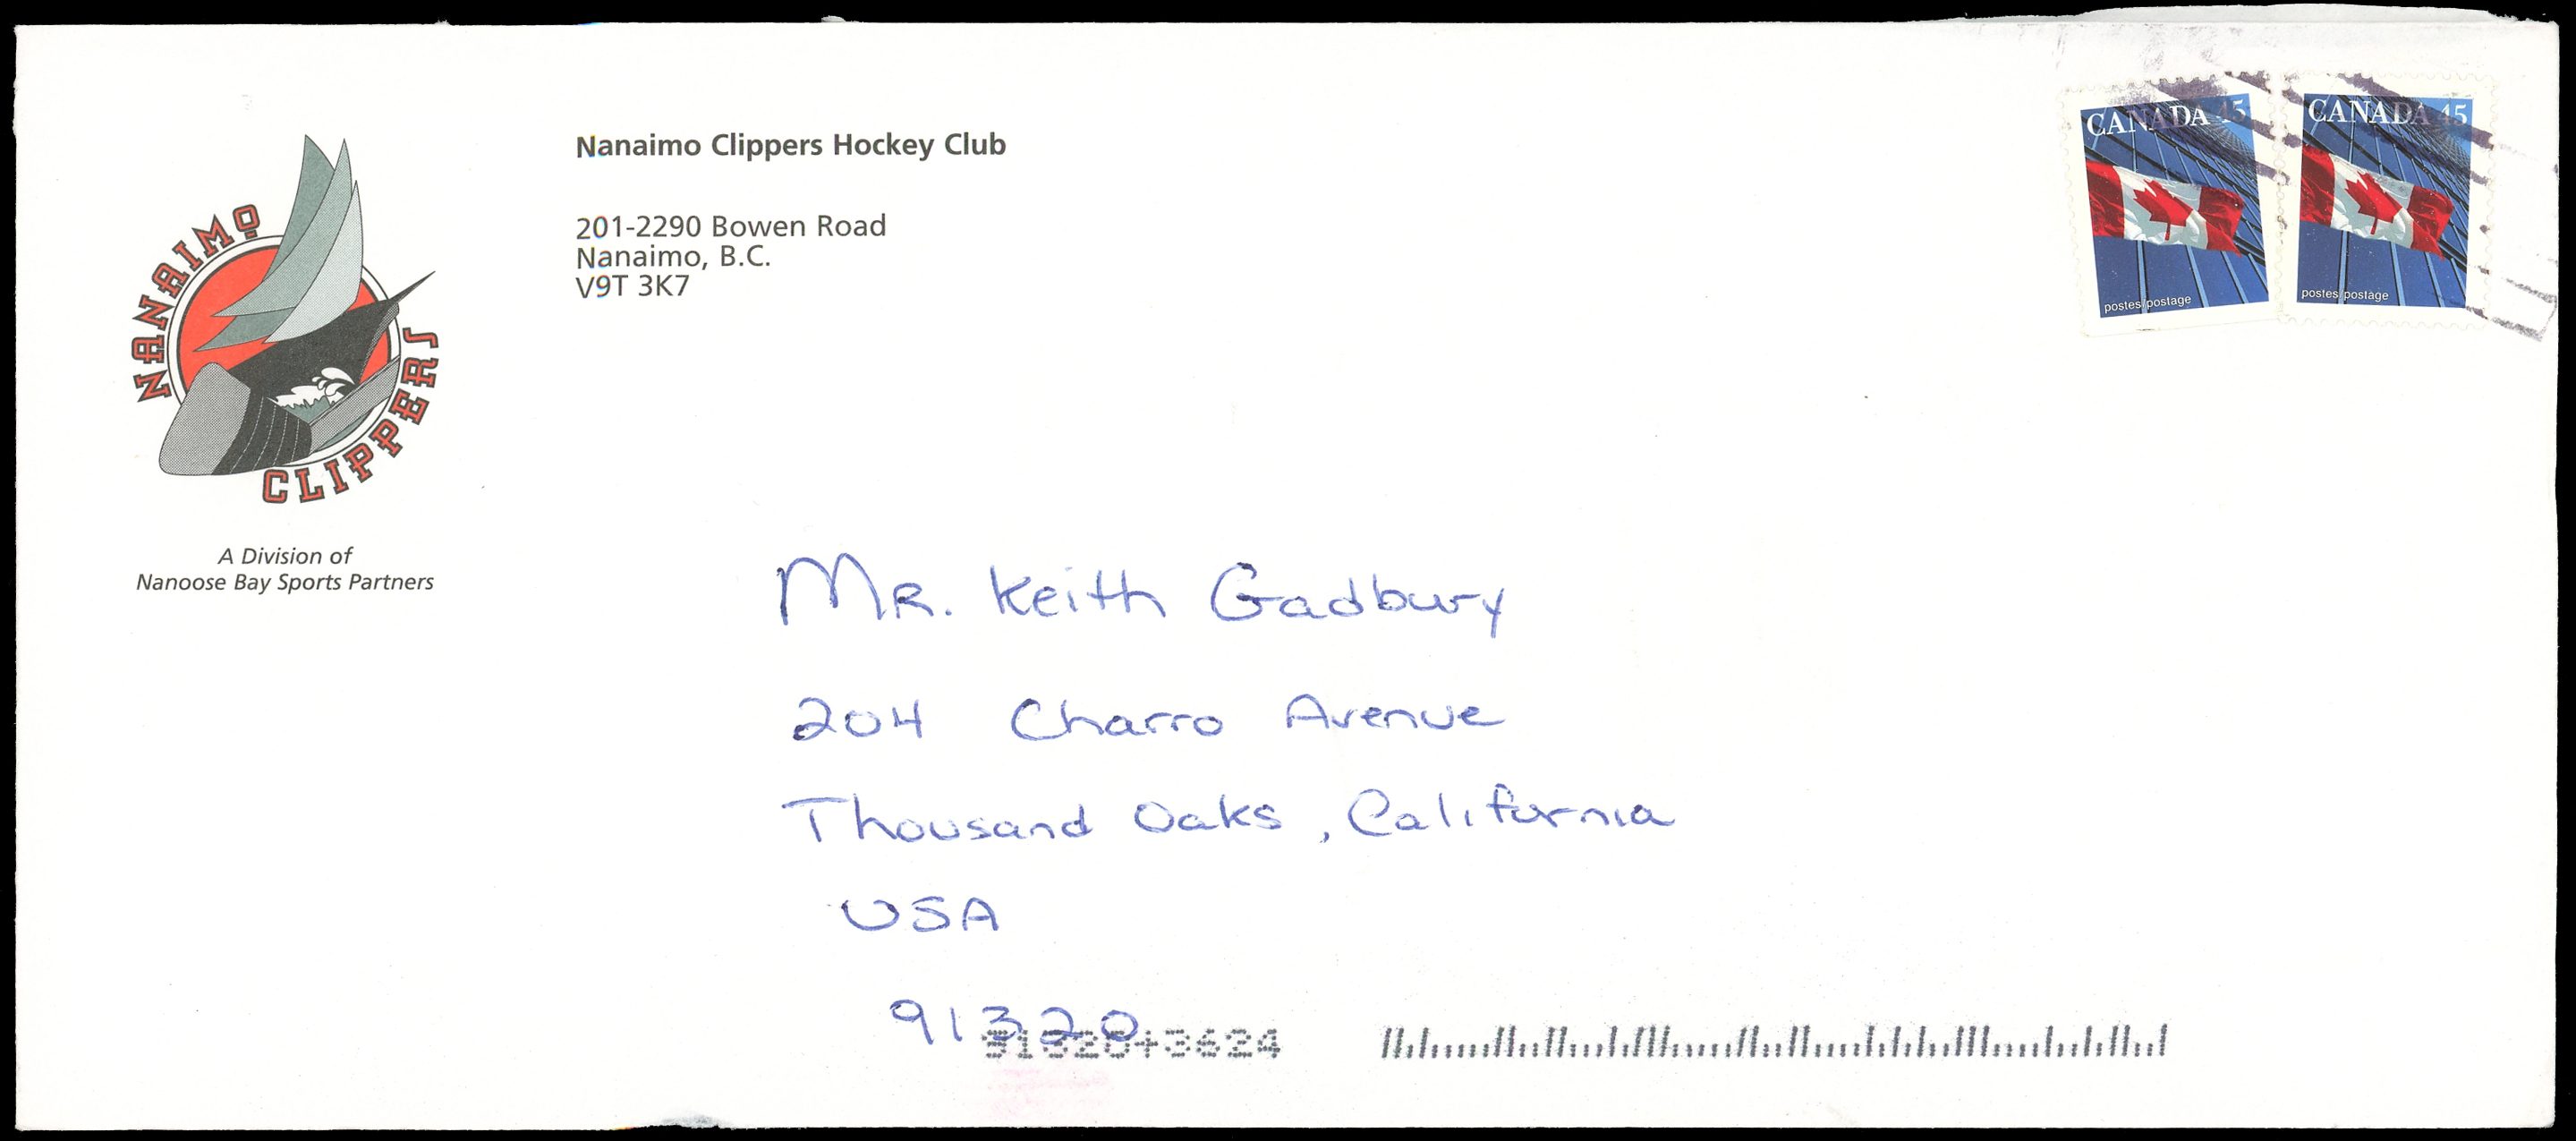 Nanaimo Clippers Hockey Club
201-2290 Bowen Road
Nanaimo, B.C.
V9T 3K7
NANAIMO
CLIPPERS
A Division of
Nanoose Bay Sports Partners
CANADA 45
postes/postage
CANADA 45
postes/postage
Mr. Keith Gadbury
204 Charro Avenue
Thousand Oaks, California
USA
91320
91320+3624